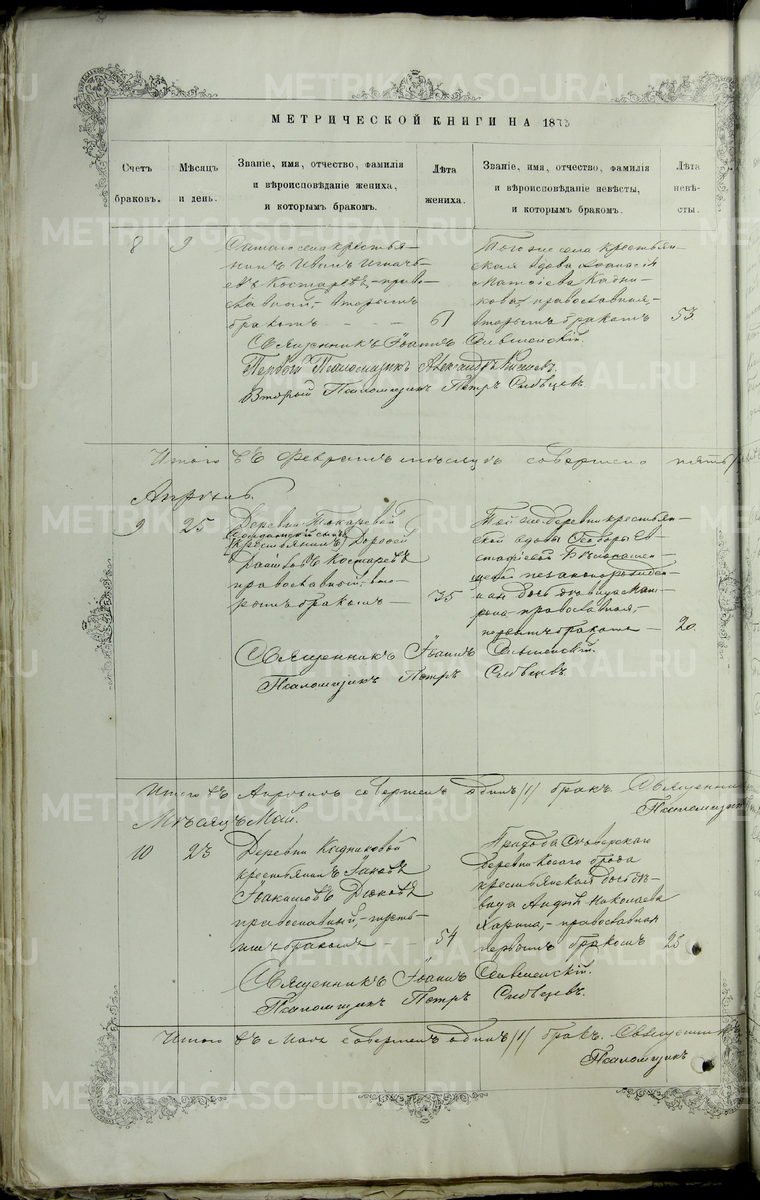 МЕТРИЧЕСКОЙ КНИГИ НА 1873
Счетъ браковъ.
Мѣсяцъ и день.
Званіе, имя, отчество, фамилія
и вѣроисповѣданіе жениха,
и которымъ бракомъ.
Лѣта жениха.
Званіе, имя, отчество, фамилія
и вѣроисповѣданіе невѣсты,
и которымъ бракомъ.
Лѣта невѣ-
сты.
8 9
крестья-
нинъ Иванъ Игнатьі-
евъ Костаревъ, - право-
славный, - вторымъ
бракомъ - - - 61
Того же села крестьян-
ская вдова
Матѳіева Кадни-
кова, православная, -
вторымъ бракомъ 53
Священникъ Іоаннъ
Первой Псаломщикъ Александръ
Второй Псаломщикъ Петръ
Итого въ Февралѣ мѣсяцѣ совершено пять
Апрѣль.
9 25
Деревни Токаревой
солдатскій сынъ
(крестьянинъ) Дороѳей
Костаревъ
православный, вто-
рымъ бракомъ - 35
Той же деревни крестьян-
ской вдовы Ѳеодоры Ев-
стафіевой
незаконорожден-
ная дочь дѣвица Мат-
рона, - православная, -
первымъ бракомъ - 20.
Священникъ Іоаннъ
Псаломщикъ Петръ
Итого въ Апрѣлѣ совершенъ одинъ /1/ бракъ. Священник
Псаломщик
Мѣсяцъ Май.
10 23
Деревни Кадниковой
крестьянинъ Іаковъ
Іоакимовъ Дюковъ
православный, - треть-
имъ бракомъ - 54
Прихода Сысертскаго
деревни Косого брода
крестьянская дочь дѣ-
вица Николаева
Ларина, - православная
первымъ бракомъ
Священникъ Іоаннъ
Псаломщикъ Петръ
Итого въ Маѣ совершенъ одинъ /1/ бракъ. Священник
Псаломщикъ
METRIKI.GASO-URAL.RU